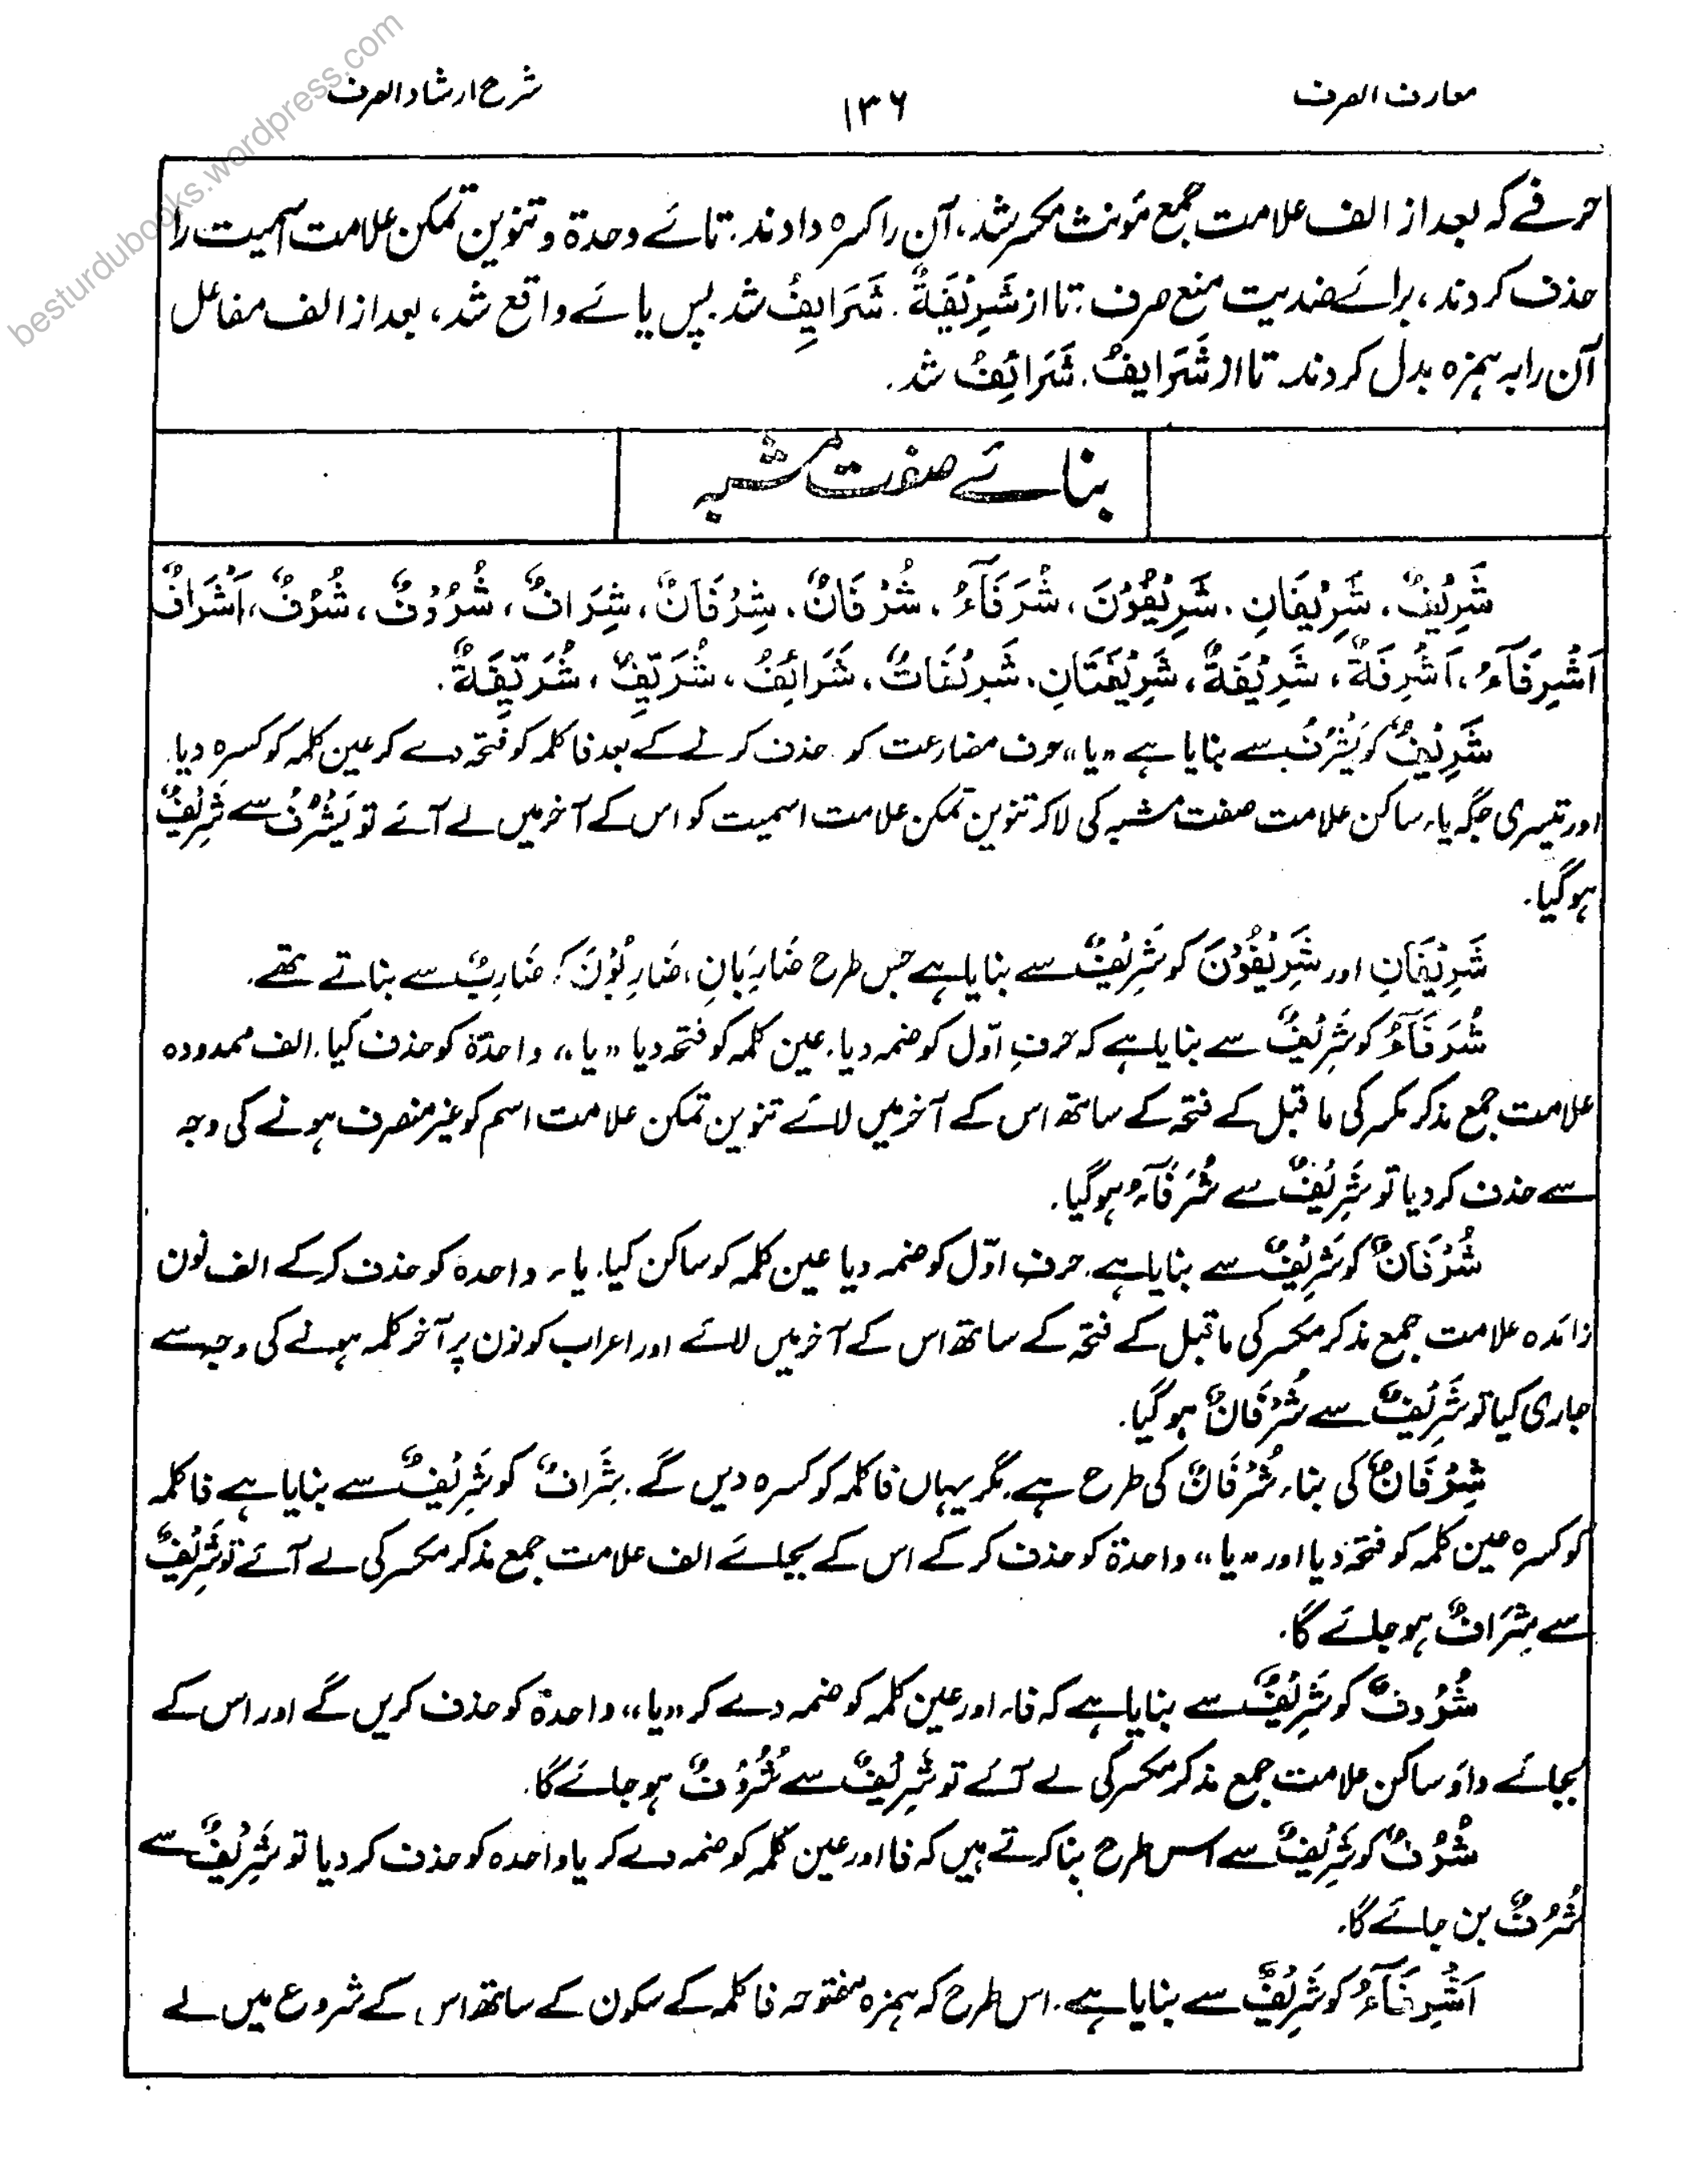 معارف الصرف
۱۳۶
شرح ارشاد الصرف
besturdubooks.wordpress.com
حرفے کہ بعد از الف علامت جمع مؤنث مکسر شد، آن را کسرہ دادند۔ تائے وحدۃ و تنوین تمکن علامت اسمیت را
حذف کردند، برائے ضدیت منع صرف۔ تا از شَرِیْفَۃٌ۔ شَرَایِفُ شد۔ پس یائے واقع شد، بعد از الف مفاعل
آن را بہ ہمزہ بدل کردند۔ تا از شَرَایِفُ۔ شَرَائِفُ شد۔
بنائے صفت مشبہ
شَرِیْفٌ، شَرِیْفَانِ، شَرِیْفُوْنَ، شُرَفَآءُ، شُرْفَانٌ، شِرْفَانٌ، شِرَافٌ، شُرُوْفٌ، شُرُفٌ، اَشْرَافٌ
اَشْرِفَآءُ، اَشْرِفَۃٌ، شَرِیْفَۃٌ، شَرِیْفَتَانِ، شَرِیْفَاتٌ، شَرَائِفُ، شُرَیِّفٌ، شُرَیِّفَۃٌ۔
شَرِیْفٌ کو یَشْرُفُ سے بنایا ہے «یا» حرف مضارعت کو حذف کرنے کے بعد فا کلمہ کو فتحہ دے کر عین کلمہ کو کسرہ دیا۔
اور تیسری جگہ یاء ساکن علامت صفت مشبہ کی لا کر تنوین تمکن علامت اسمیت کو اس کے آخر میں لے آئے تو یَشْرُفُ سے شَرِیْفٌ
ہو گیا۔
شَرِیْفَانِ اور شَرِیْفُوْنَ کو شَرِیْفٌ سے بنایا ہے جس طرح ضَارِبَانِ، ضَارِبُوْنَ کو ضَارِبٌ سے بناتے تھے۔
شُرَفَآءُ کو شَرِیْفٌ سے بنایا ہے کہ حرفِ اوّل کو ضمہ دیا۔ عین کلمہ کو فتحہ دیا «یا» واحدۃ کو حذف کیا۔ الف ممدودہ
علامت جمع مذکر مکسر کی ماقبل کے فتحہ کے ساتھ اس کے آخر میں لائے تنوین تمکن علامت اسم کو غیر منصرف ہونے کی وجہ
سے حذف کر دیا تو شَرِیْفٌ سے شُرَفَآءُ ہو گیا۔
شُرْفَانٌ کو شَرِیْفٌ سے بنایا ہے۔ حرفِ اوّل کو ضمہ دیا عین کلمہ کو ساکن کیا۔ یاء واحدہ کو حذف کر کے الف نون
زائدہ علامت جمع مذکر مکسر کی ماقبل کے فتحہ کے ساتھ اس کے آخر میں لائے اور اعراب کو نون پر آخر کلمہ ہونے کی وجہ سے
جاری کیا تو شَرِیْفٌ سے شُرْفَانٌ ہو گیا۔
شِرْفَانٌ کی بناء شُرْفَانٌ کی طرح ہے۔ مگر یہاں فا کلمہ کو کسرہ دیں گے۔ شِرَافٌ کو شَرِیْفٌ سے بنایا ہے فا کلمہ
کو کسرہ عین کلمہ کو فتحہ دیا اور «یا» واحدۃ کو حذف کر کے اس کے بجائے الف علامت جمع مذکر مکسر کی لے آئے تو شَرِیْفٌ
سے شِرَافٌ ہو جائے گا۔
شُرُوفٌ کو شَرِیْفٌ سے بنایا ہے کہ فاء اور عین کلمہ کو ضمہ دے کر «یا» واحدۃ کو حذف کریں گے اور اس کے
بجائے واؤ ساکن علامت جمع مذکر مکسر کی لے آئے تو شَرِیْفٌ سے شُرُوْفٌ ہو جائے گا۔
شُرُفٌ کو شَرِیْفٌ سے اس طرح بنا کرتے ہیں کہ فا اور عین کلمہ کو ضمہ دے کر یا واحدہ کو حذف کر دیا تو شَرِیْفٌ سے
شُرُفٌ بن جائے گا۔
اَشْرِفَآءُ کو شَرِیْفٌ سے بنایا ہے۔ اس طرح کہ ہمزہ مفتوحہ فا کلمہ کے سکون کے ساتھ اس کے شروع میں لے